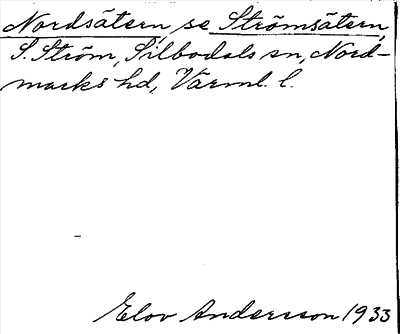 Nordsätern, se Strömsätern,
S. Ström, Silbodals sn, Nord-
marks hd, Värml. l.
Elov Andersson 1933